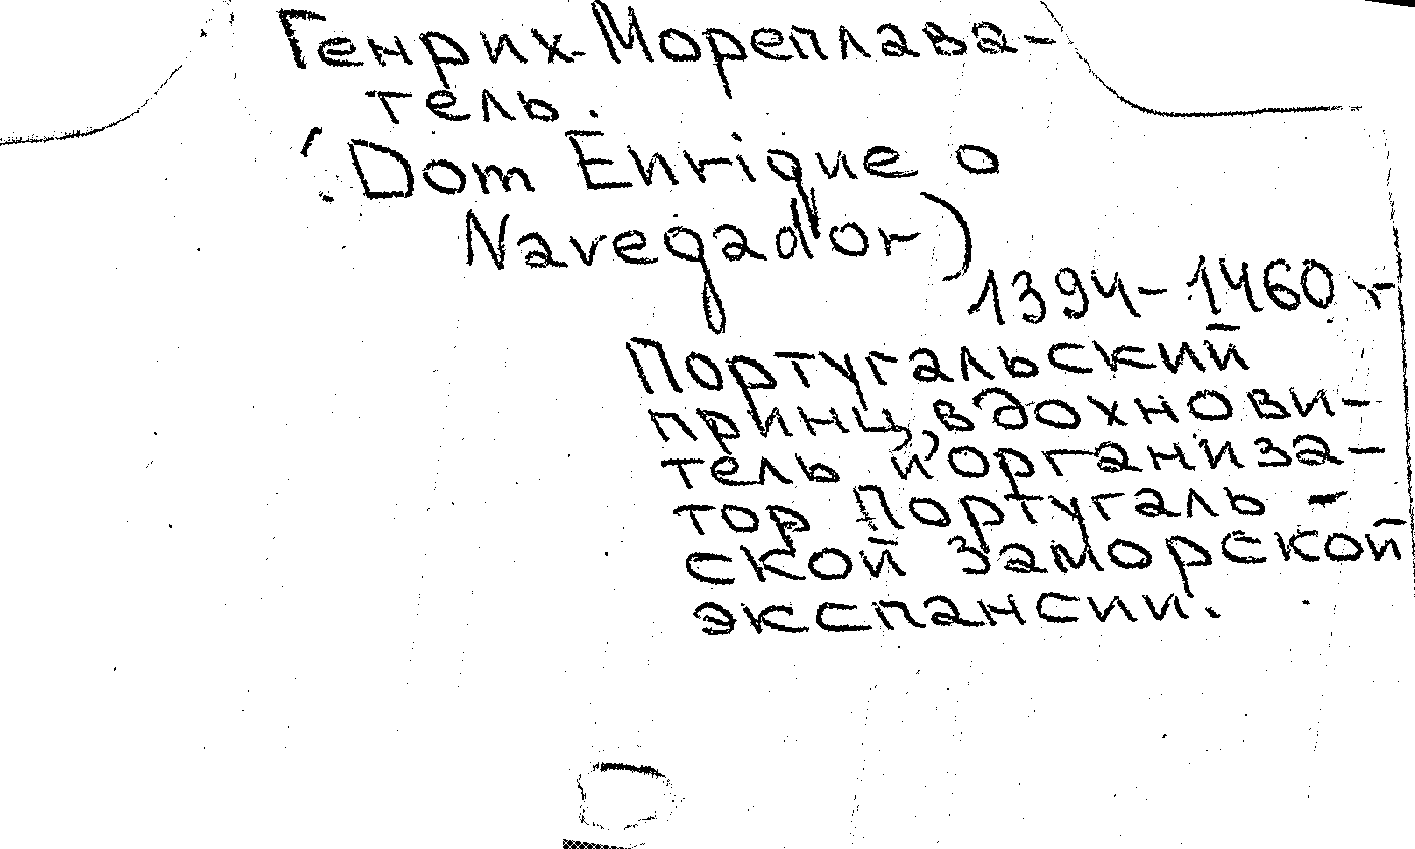 Генрих Мореплава-
тель.
(Dom Enrique o
Navegador)
1394-1460 г
Португальский
принц, вдохнови-
тель и организа-
тор Португаль-
ской заморской
экспансии.